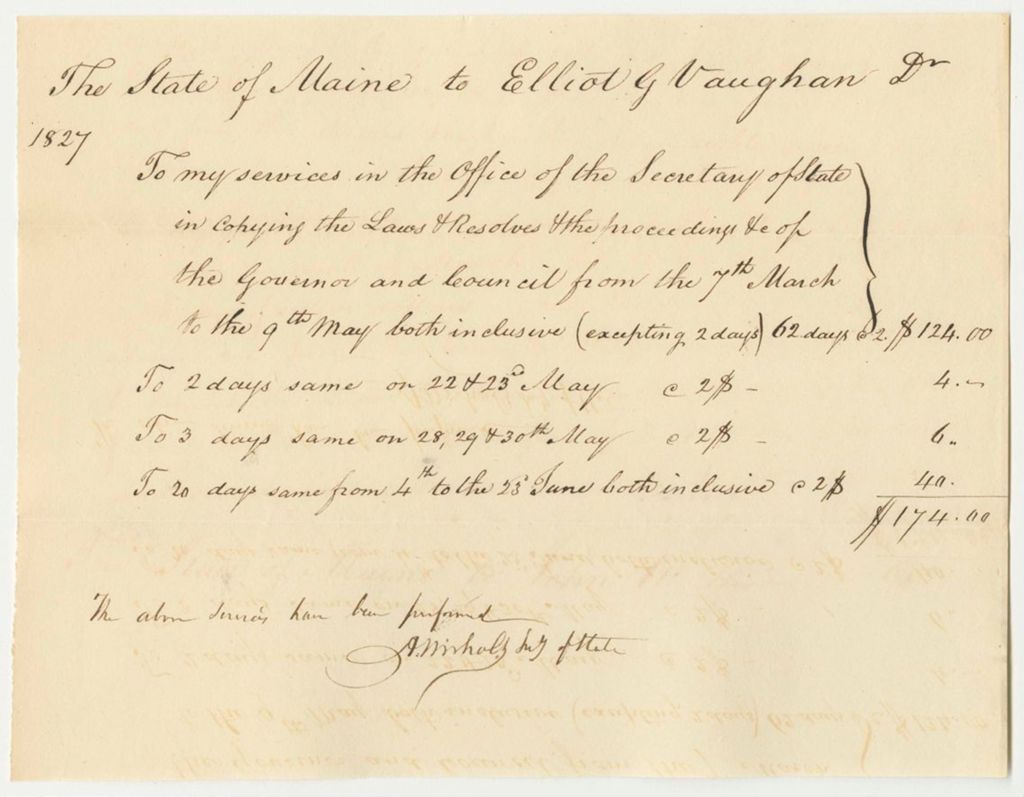 The State of Maine to Elliot G Vaughan Dr
1827
To my services in the Office of the Secretary of State
in copying the Laws & Resolves & the proceedings &c of
the Governor and Council from the 7th March
to the 9th May both inclusive (excepting 2 days) 62 days @ 2. $124.00
To 2 days same on 22 & 23d May @ 2$ – 4.–
To 3 days same on 28, 29 & 30th May @ 2$ – 6..
To 20 days same from 4th to the 23d June both inclusive @ 2$ 40.
$174.00
The above services have been performed
A. Nichols Secy of State